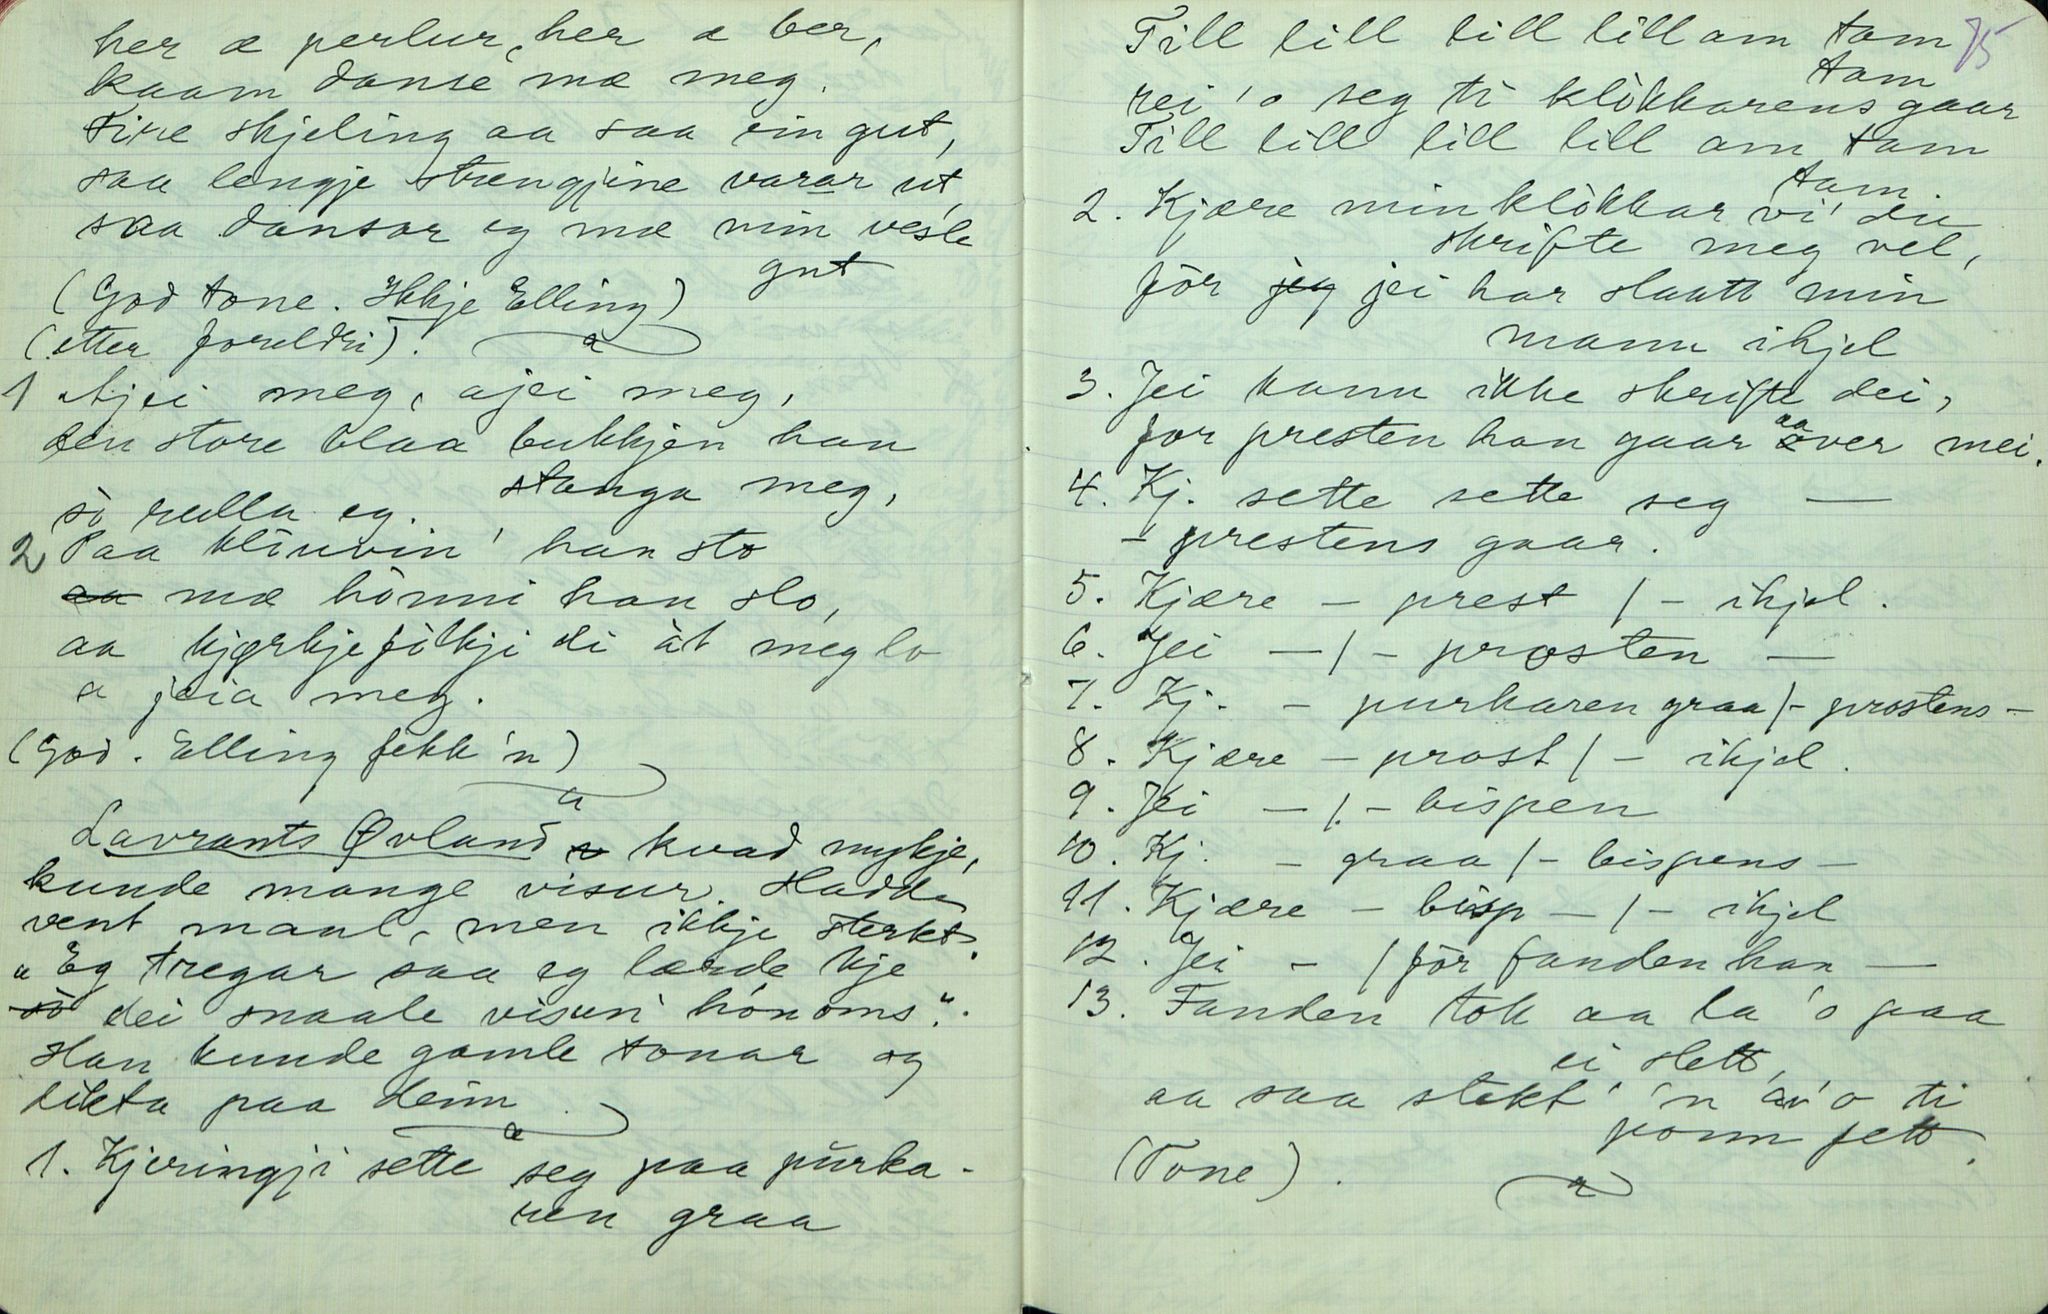 her æ perlur, her æ ber,
kaam danse mæ meg.
Fire skjeling aa saa ein gut,
saa lengje strengjine varar ut,
saa dansar eg mæ min vesle
gut
(God tone. Ikkje Elling)
(etter foreldri).
1 Ajei meg, ajei meg,
den store blaa bukkjen han
stanga meg,
so rulla eg.
2 Paa kluvin' han sto
aa mæ hönni han slo,
aa kjærkjefölkji di åt meg lo
a jeia meg.
(God. Elling fekk'n)
Lavrants Øvland kvad mykje,
kunde mange visur. Hadde
vent maal, men ikkje sterkt.
"Eg tregar saa eg lærde kje
so dei snaale visun' hönoms".
Han kunde gamle tonar og
dikta paa deim.
1. Kjeringji sette seg paa purka-
ren graa
Till lill lill lill am tam 75
tam
rei 'o seg ti klökkarens gaar
Till lill lill lill am tam
tam.
2. Kjære min klökkar vi' du
skrifte meg vel,
för jeg jei har slaatt min
mann ihjel
3. Jei kann ikke skrifte dei,
for presten han gaar aaver mei.
4. Kj. sette sette seg —
- prestens gaar.
5. Kjære - prest / - ihjel.
6. Jei - / - prosten —
7. Kj. - purkaren graa / - prostens -
8. Kjære - prost / - ihjel.
9. Jei - / - bispen
10. Kj. - graa / - bispens -
11. Kjære - bisp - / - ihjel
12. Jei - / för fanden han —
13. Fanden tok aa la 'o paa
ei slett,
aa saa stekt' 'n av 'o ti
ponn fett.
(Tone).